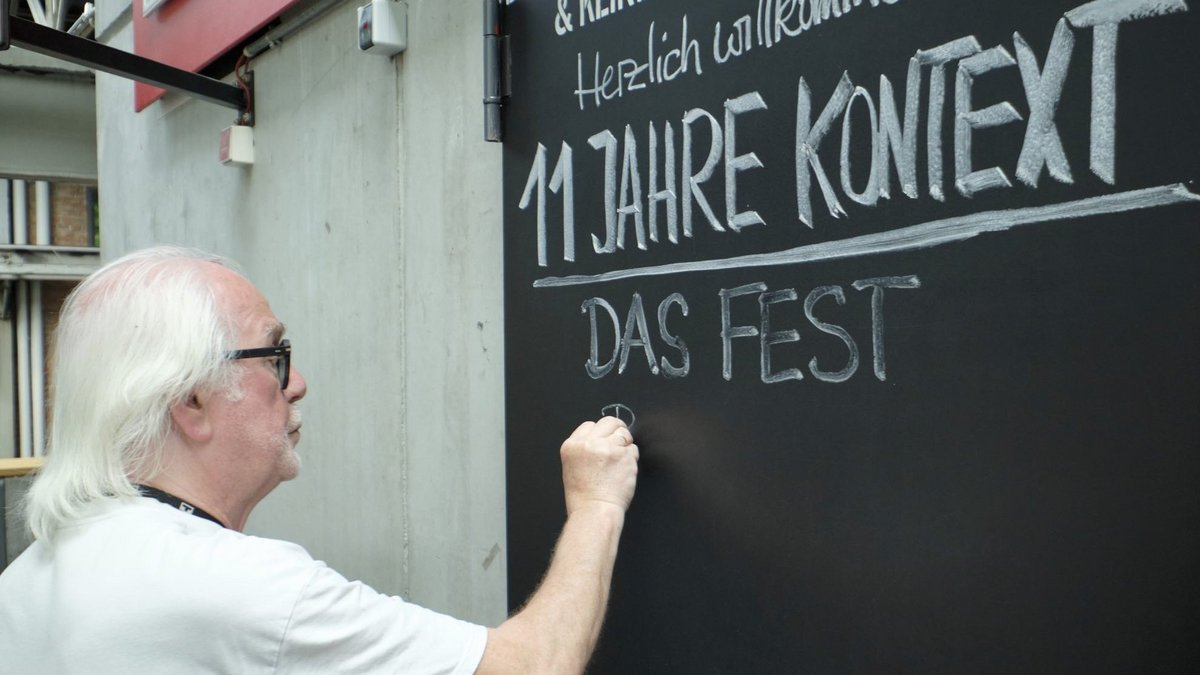 &
Herzlich willkommen
11 JAHRE KONTEXT
DAS FEST